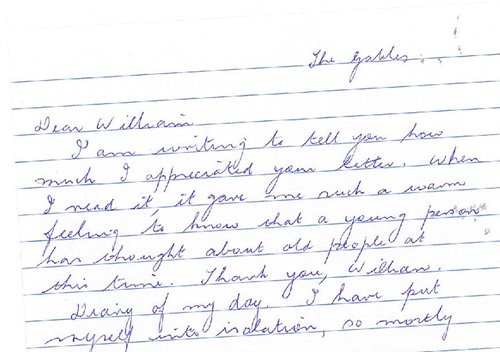 The Gables.
Dear William.
I am writing to tell you how
much I appreciated your letter. When
I read it, it gave me such a warm
feeling to know that a young person
has thought about old people at
this time. Thank you, William.
Diary of my day. I have put
myself into isolation, so mostly